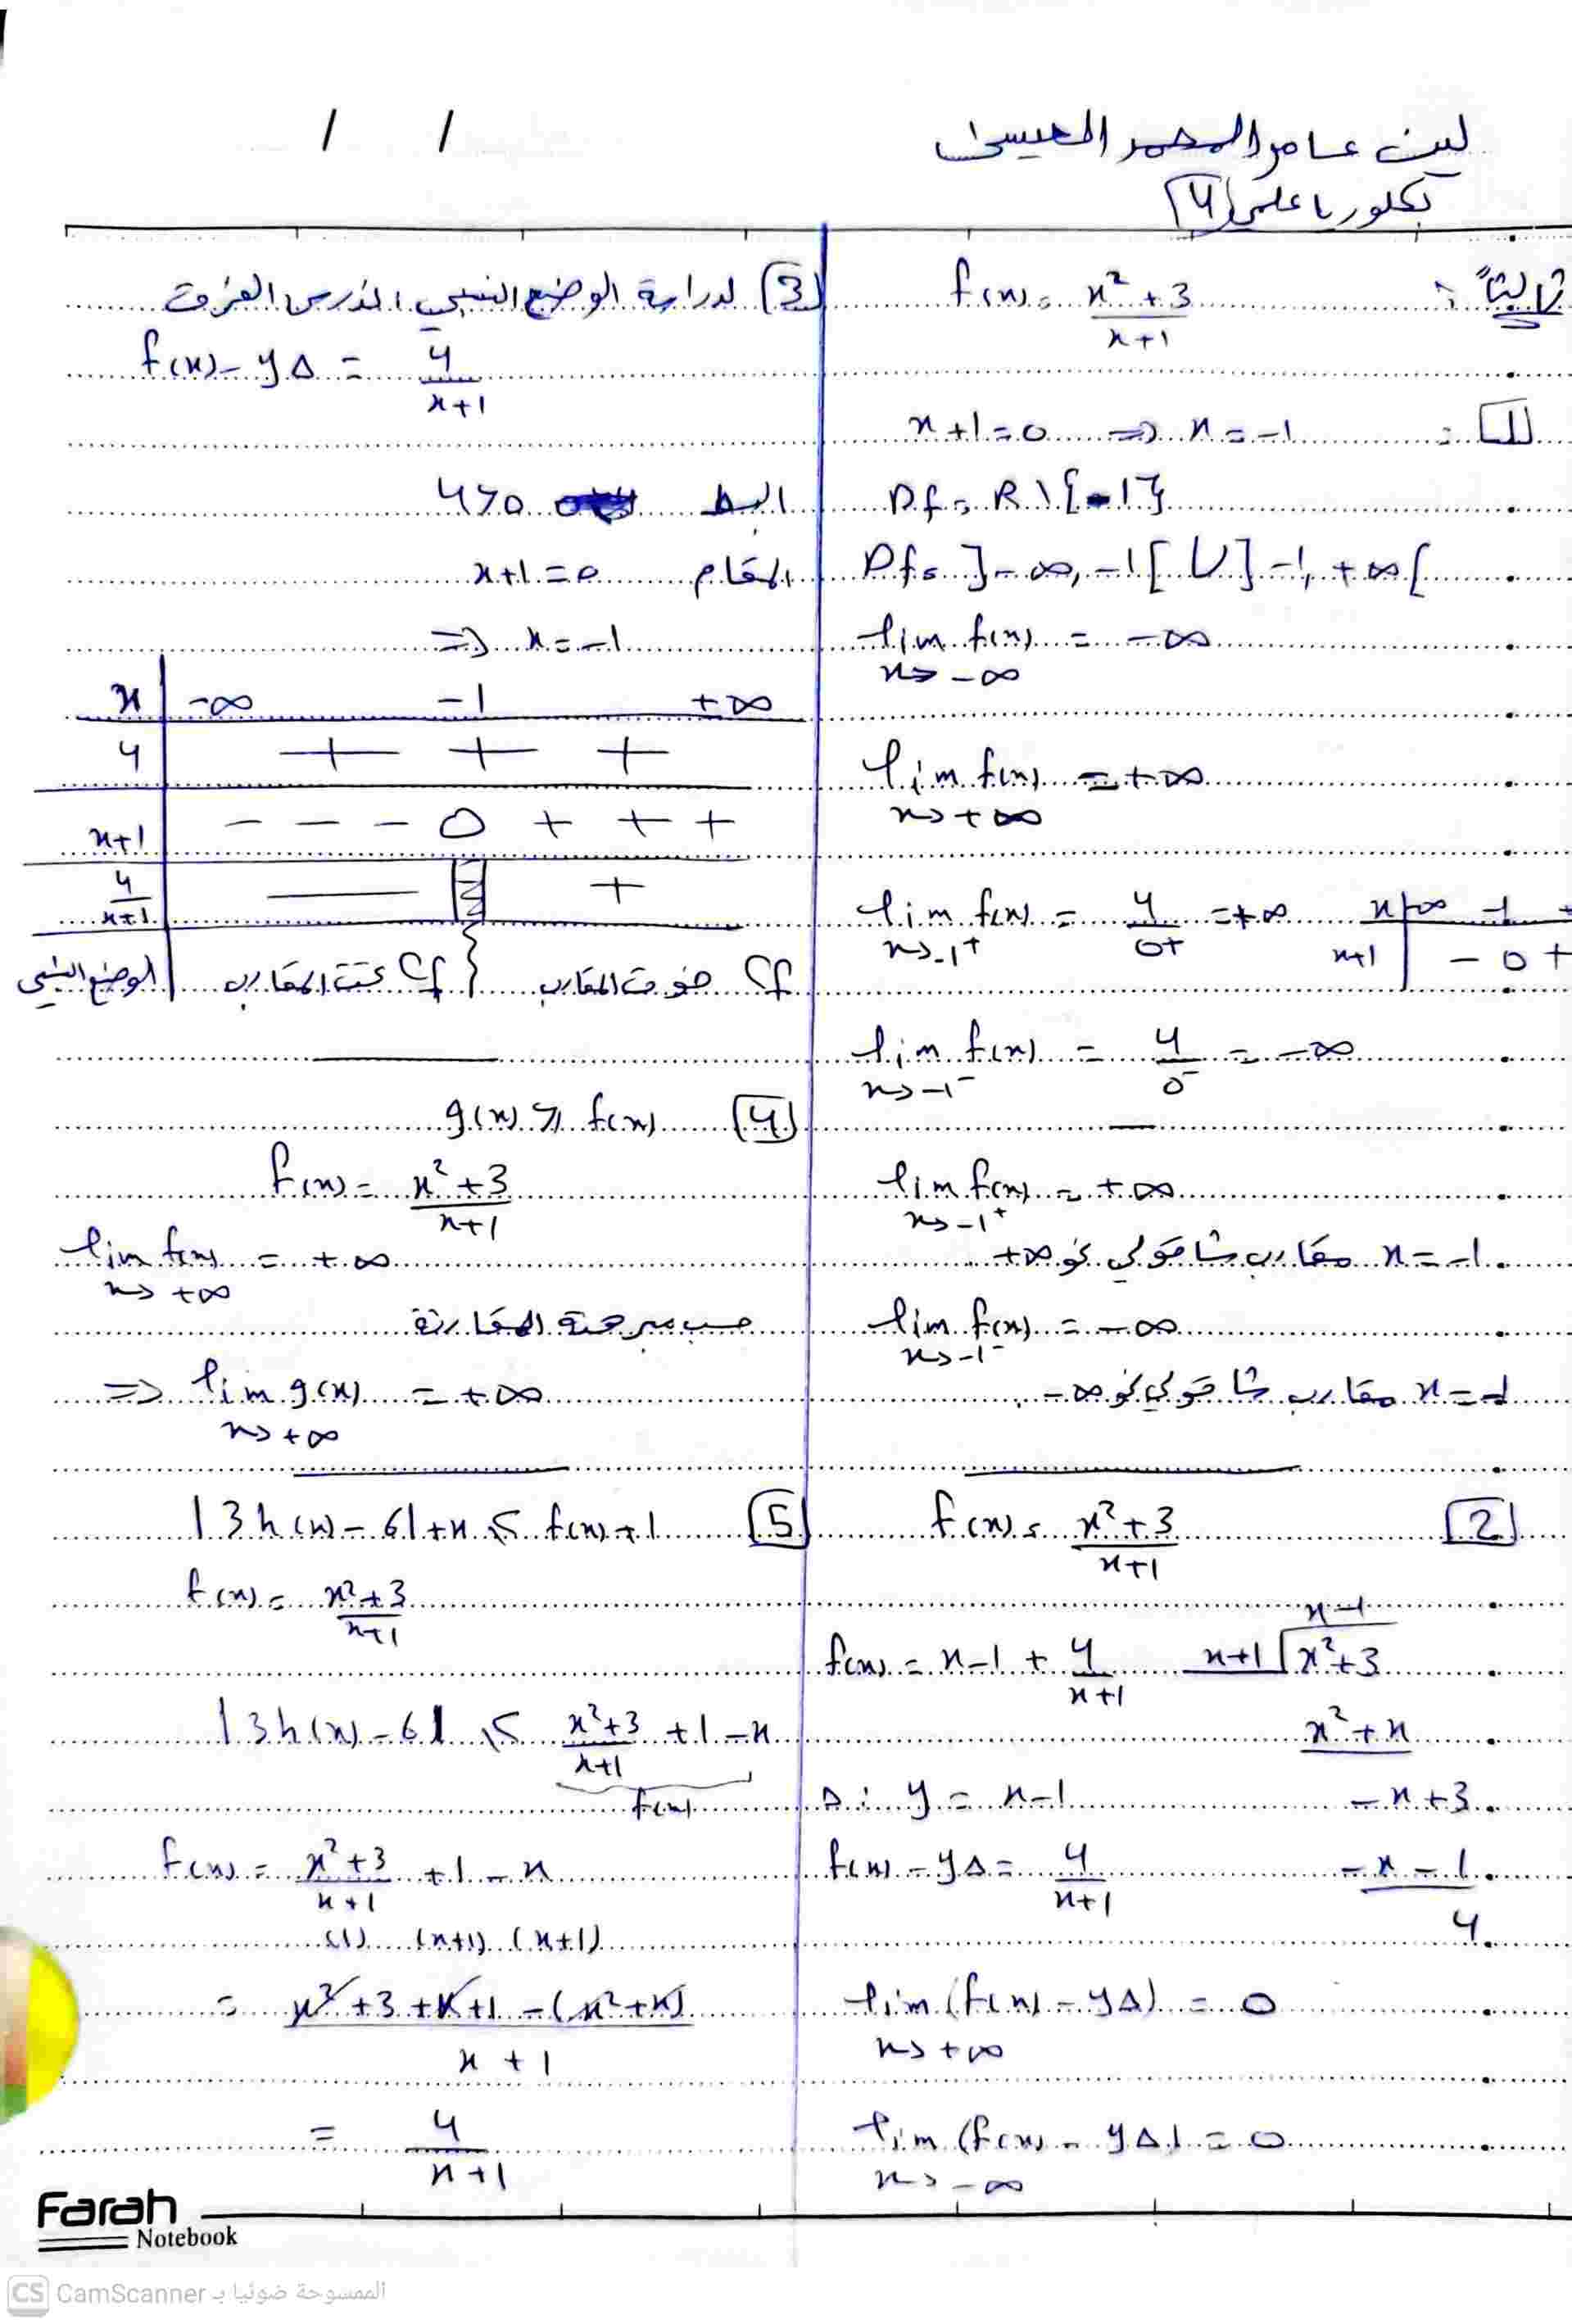 لين عامر المحمد العيسى
بكلوريا علمي (4)
/ /
ثالثاً : f(x) = \frac{x²+3}{x+1}
[1] : x+1=0 => x=-1
Df = R\{-1}
Df = ]-∞, -1[ U ]-1, +∞[
lim f(x) = -∞
x→-∞
lim f(x) = +∞
x→+∞
lim f(x) = \frac{4}{0+} = +∞
x→-1+
x | -∞ -1 +
x+1 | - 0 +
lim f(x) = \frac{4}{0-} = -∞
x→-1-
lim f(x) = +∞
x→-1+
x=-1 مقارب شاقولي نحو +∞
lim f(x) = -∞
x→-1-
x=-1 مقارب شاقولي نحو -∞
[2] f(x) = \frac{x²+3}{x+1}
x-1
f(x) = x-1 + \frac{4}{x+1} x+1 | x²+3
x²+x
Δ: y = x-1 -x+3
f(x)-yΔ = \frac{4}{x+1} -x-1
4
lim (f(x)-yΔ) = 0
x→+∞
lim (f(x)-yΔ) = 0
x→-∞
[3] لدراسة الوضع النسبي ندرس الفرق
f(x)-yΔ = \frac{4}{x+1}
البسط 4>0
المقام x+1=0
=> x=-1
x | -∞ -1 +∞
4 | + + +
x+1 | - - - 0 + + +
\frac{4}{x+1} | - || +
الوضع النسبي | C f تحت المقارب } C f فوق المقارب
[4] g(x) ≥ f(x)
f(x) = \frac{x²+3}{x+1}
lim f(x) = +∞
x→+∞
حسب مبرهنة المقارنة
=> lim g(x) = +∞
x→+∞
[5] |3h(x)-6|+x ≤ f(x)+1
f(x) = \frac{x²+3}{x+1}
|3h(x)-6| ≤ \frac{x²+3}{x+1} +1-x
f(x)
f(x) = \frac{x²+3}{x+1} +1-x
(1) (x+1) (x+1)
= \frac{x²+3+x+1-(x²+x)}{x+1}
= \frac{4}{x+1}
Farah
Notebook
CS CamScanner الممسوحة ضوئيا بـ